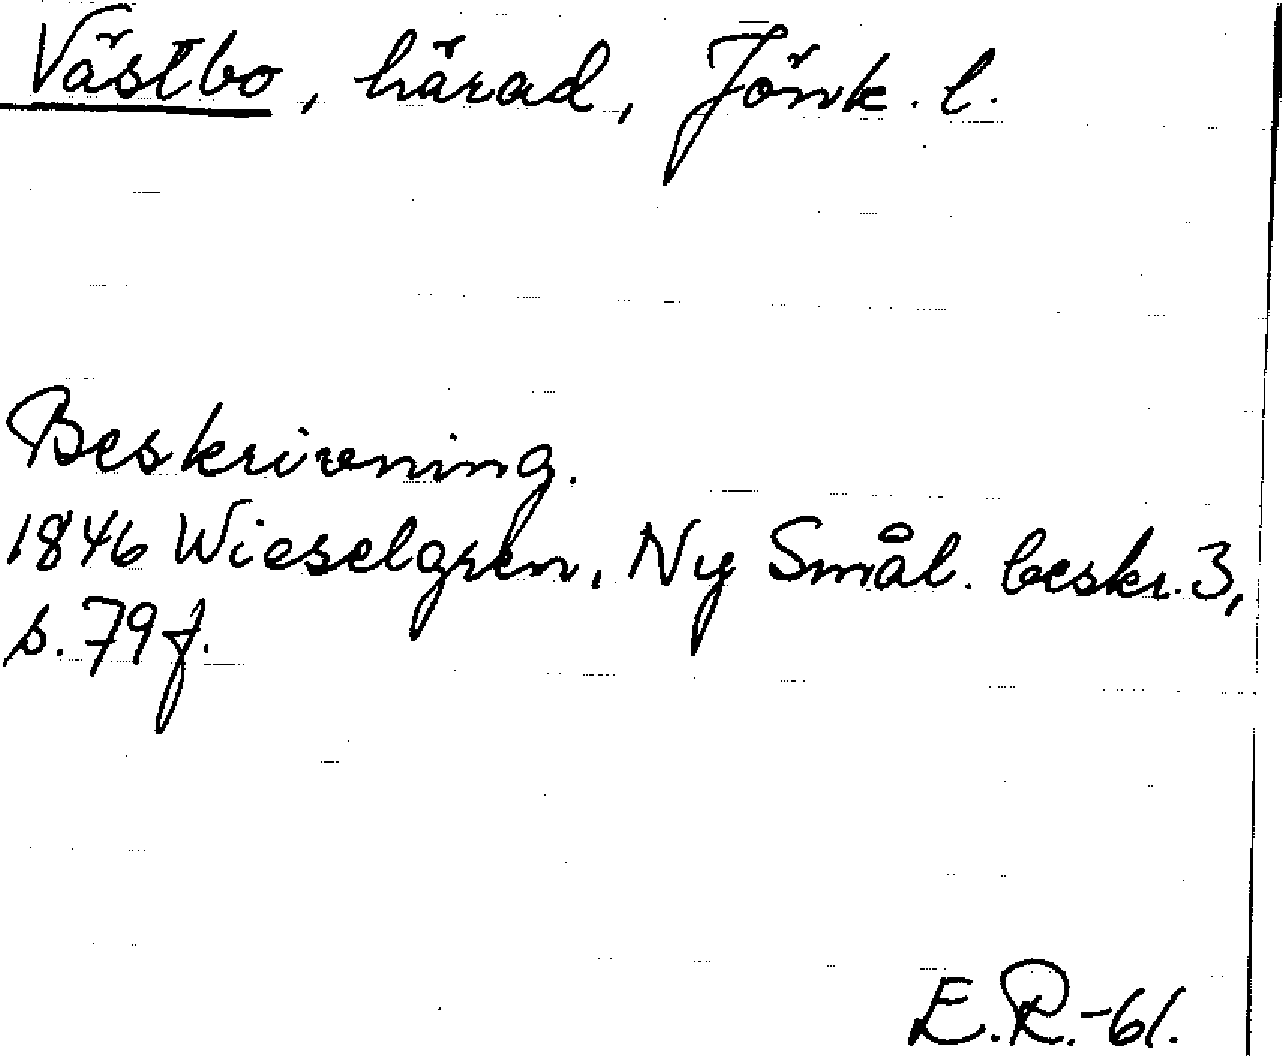 Västbo, härad, Jönk. l.
Beskrivning.
1846 Wieselgren, Ny Smål. beskr. 3,
s. 79 f.
E.R.-61.